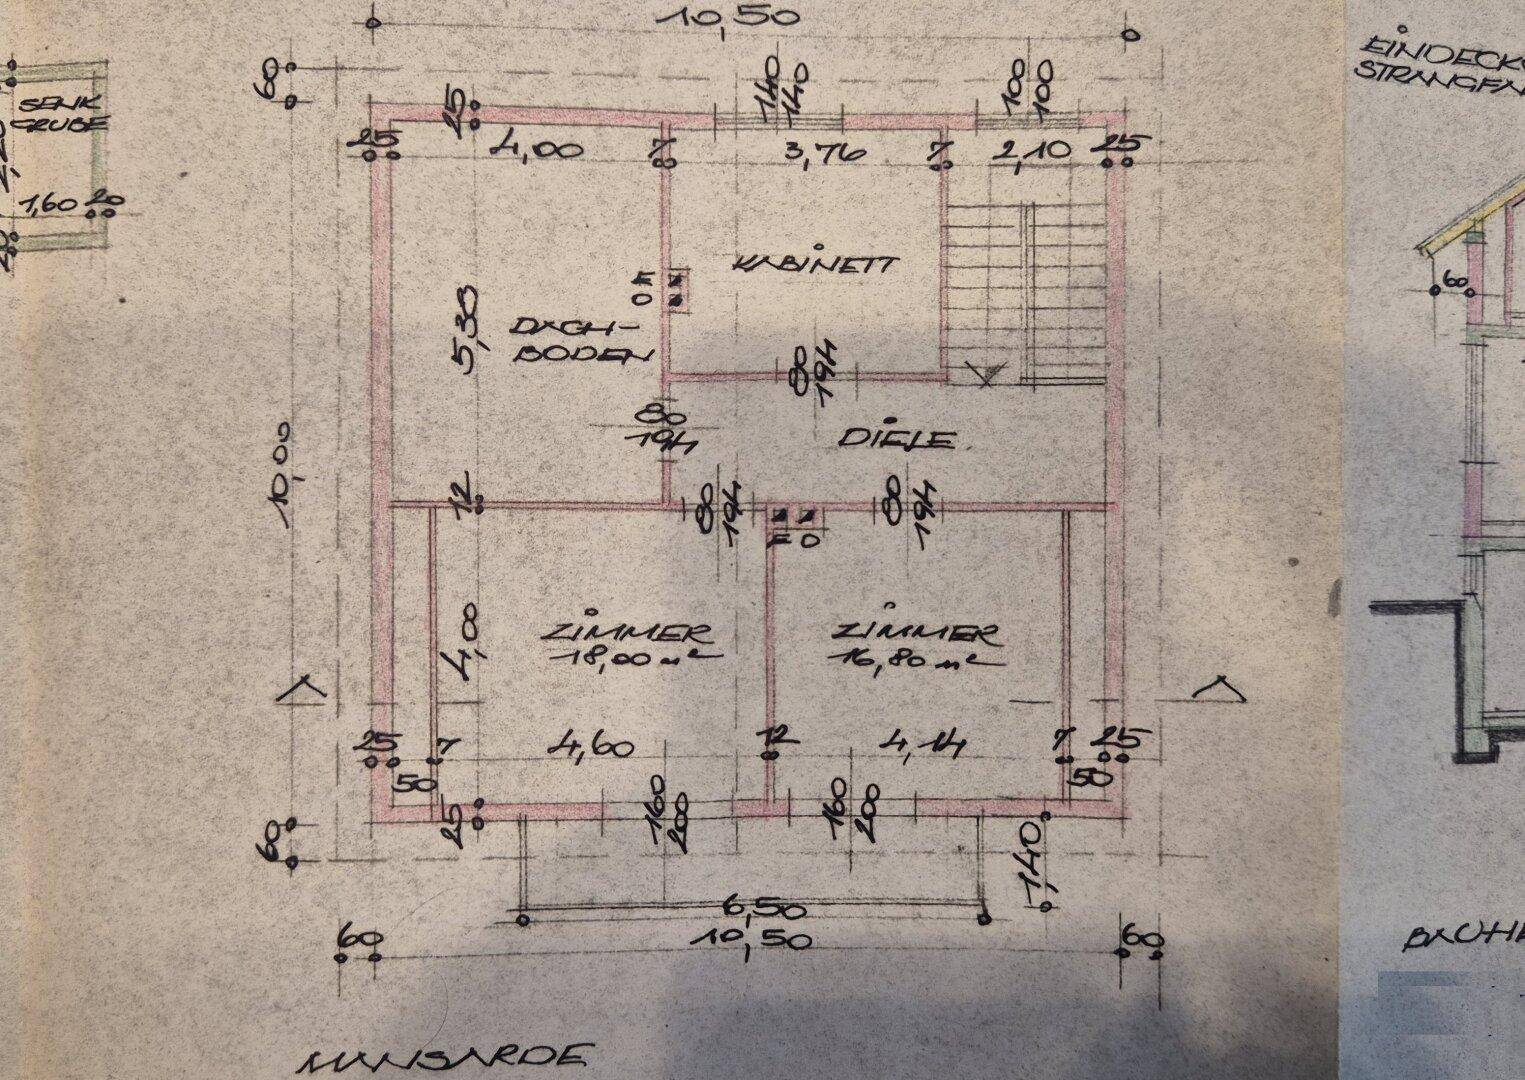 10,50
60
140
140
100
100
EINDECK
STRANGFA
SENK
GRUBE
25
25
4,00
7
3,76
7
2,10
25
1,60
20
KABINETT
F
O
60
5,30
DACH-
BODEN
80
194
80
194
DIELE
10,00
12
80
194
80
194
F O
4,00
ZIMMER
18,00 m²
ZIMMER
16,80 m²
25
7
4,60
12
4,14
7
25
50
50
25
160
200
160
200
60
1,40
6,50
60
10,50
60
BAUHE
MANSARDE